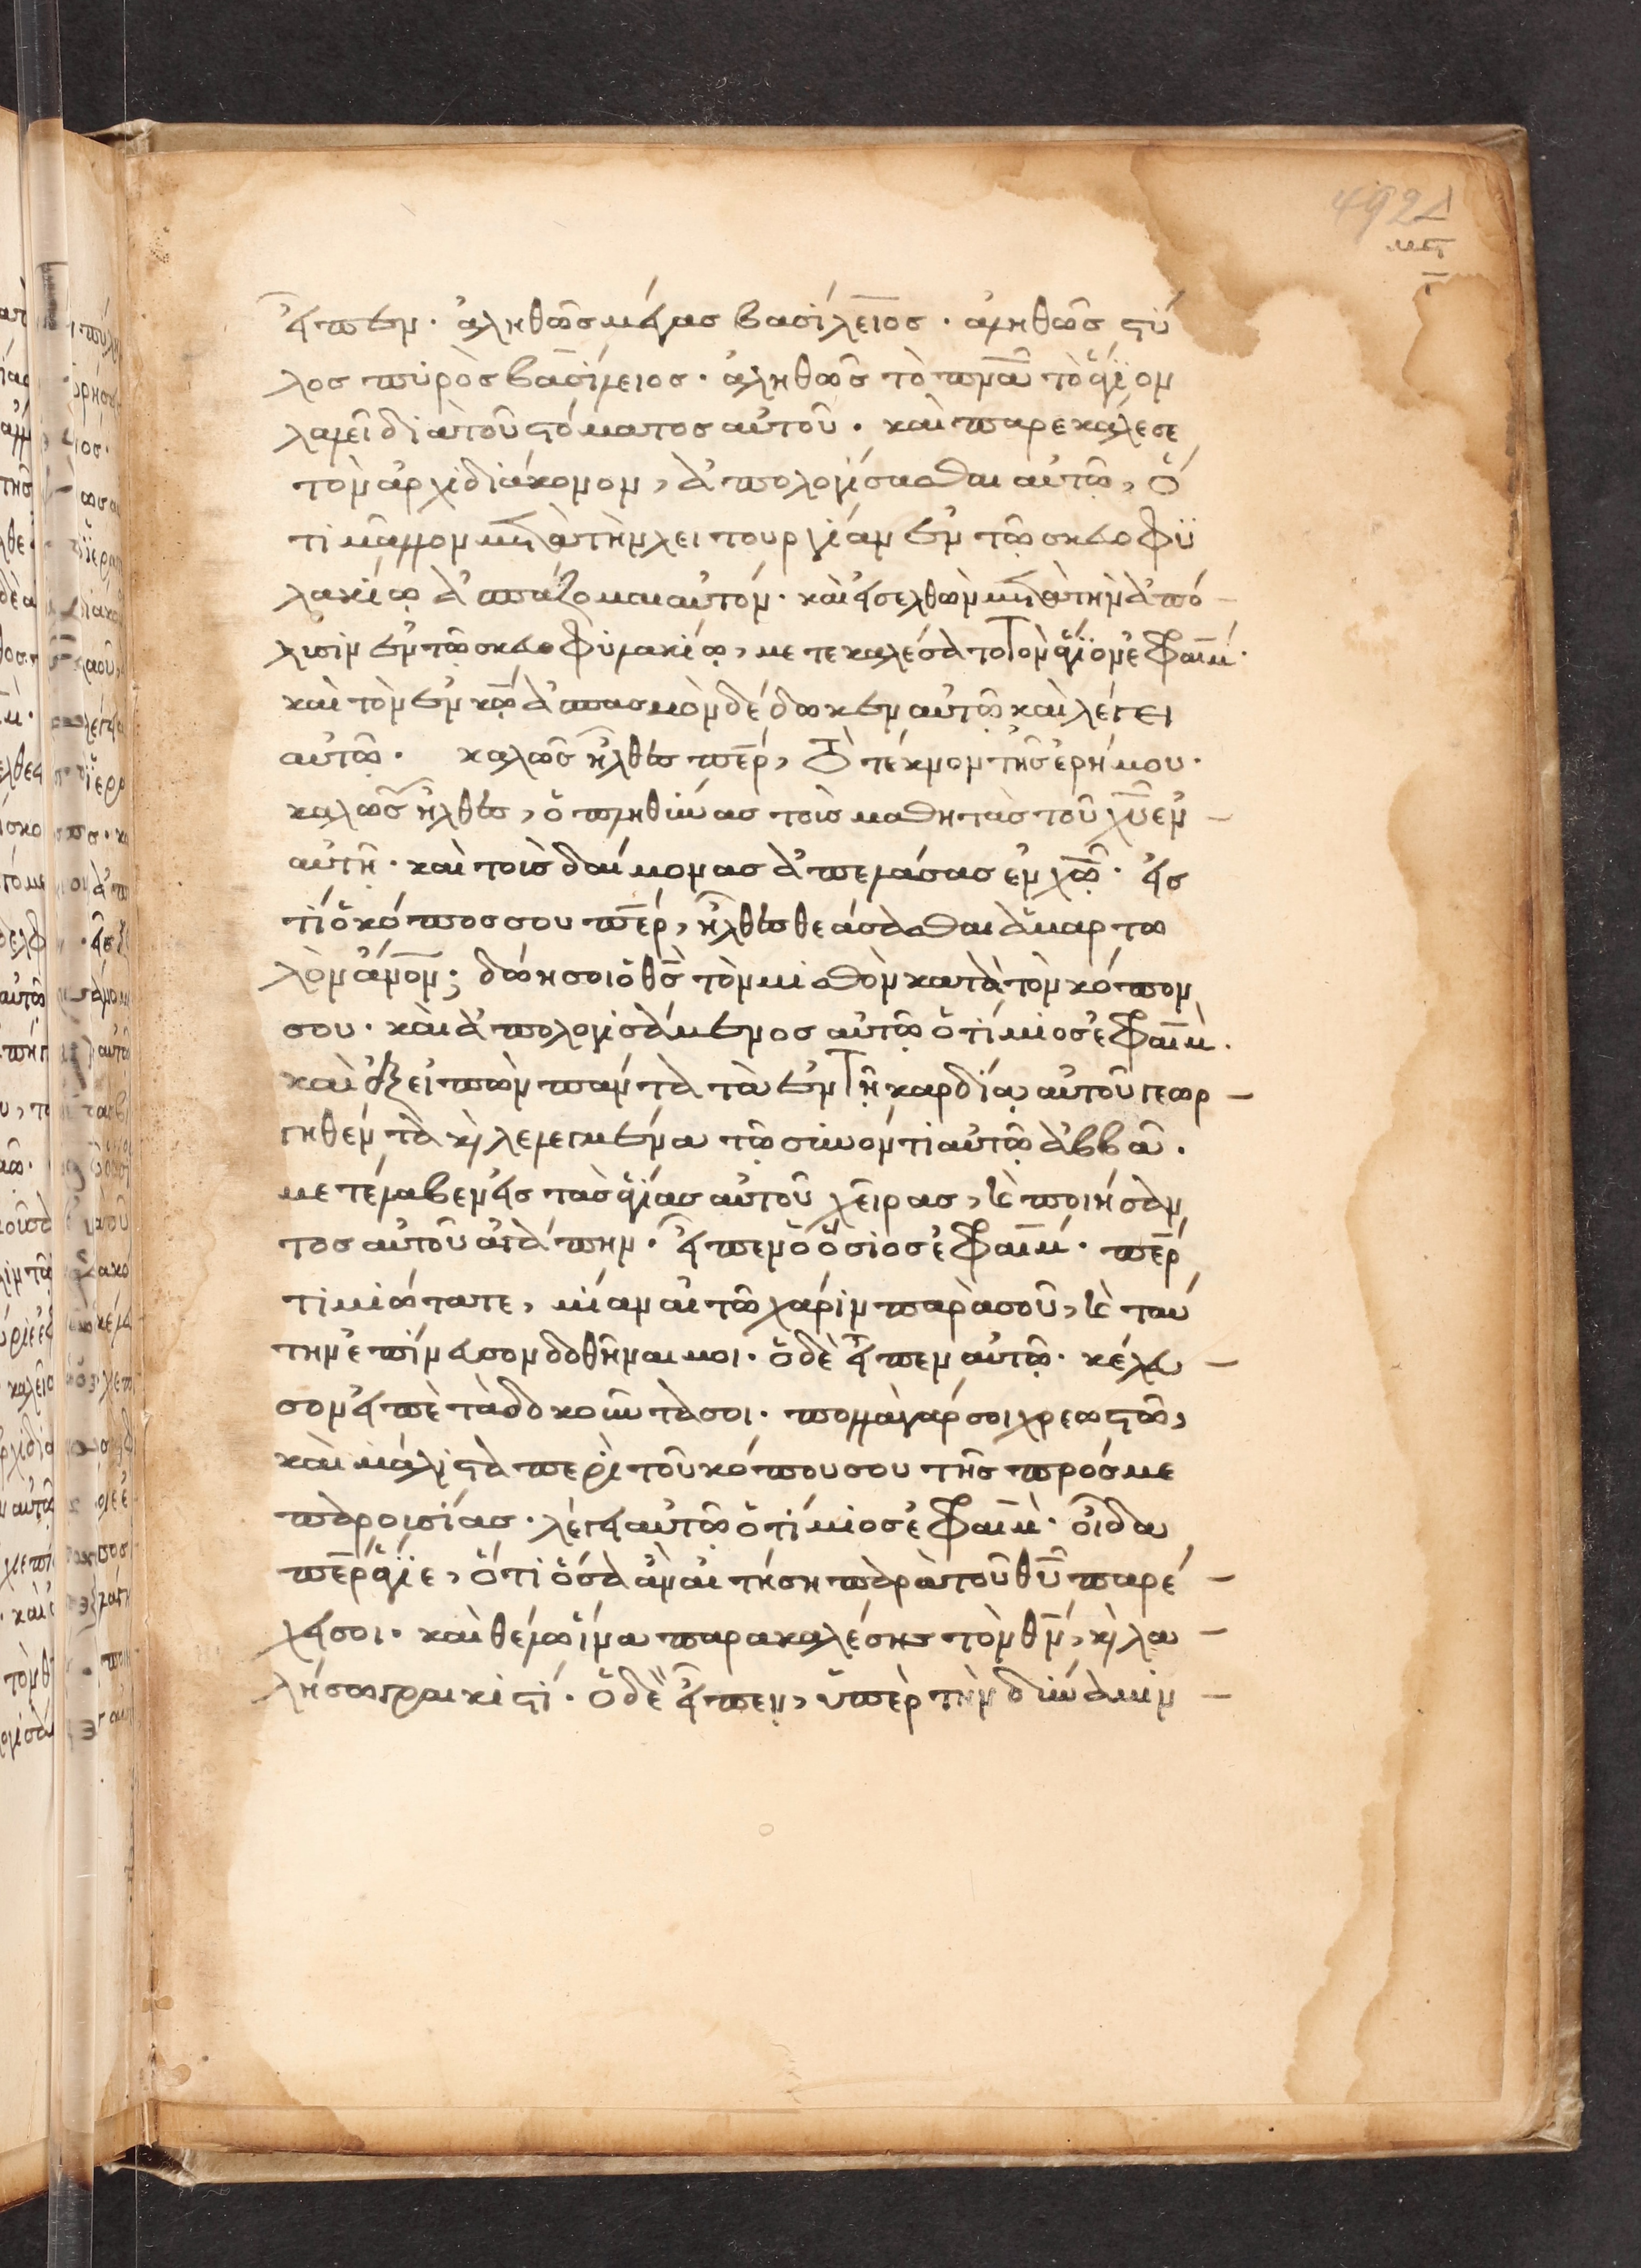 εἶπεν· ἀληθῶς μέγας βασίλειος· ἀληθῶς στύ
λος πυρὸς βασίλειος· ἀληθῶς τὸ πνᾶ τὸ ἅγϊον
λαλεῖ διὰ τοῦ στόματος αὐτοῦ· καὶ παρεκάλεσε
τὸν ἀρχιδιάκονον, ἀπολογίσασθαι αὐτῶ, ὅ
τι μᾶλλον μετὰ τὴν λειτουργίαν ἐν τῶ σκευοφϋ
λακίω ἀσπάζομαι αὐτόν· καὶ εἰσελθὼν μετὰ τὴν ἀπό
λυσιν ἐν τῶ σκευοφυλακίω, μετεκαλέσατο τὸν ἅγϊον ἐφραὶμ·
καὶ τὸν ἐν κῶ ἀσπασμὸν δέδωκεν αὐτῶ καὶ λέγει
αὐτῶ· καλῶς ἦλθες περ, ὦ τέκνον τῆς ἐρήμου·
καλῶς ἦλθες, ὁ πληθύνας τοὺς μαθητὰς τοῦ χυ ἐν
αὐτῆ· καὶ τοὺς δαίμονας ἀπελάσας ἐν χῶ· εἰς
τί ὁ κόπος σου περ, ἦλθες θεάσασθαι ἁμαρτω
λὸν ἀνον; δώη σοι ὁ θς τὸν μισθὸν κατὰ τὸν κόπον
σου· καὶ ἀπολογισάμενος αὐτῶ ὁ τίμιος ἐφραὶμ·
καὶ ἐξειπὼν πάντα τὰ ἐν τῆ καρδία αὐτοῦ γεωρ
γηθέντα κὶ λελεγμένα τῶ συνόντι αὐτῶ ἀββᾶ·
μετέλαβεν εἰς τὰς ἁγίας αὐτοῦ χεῖρας, καὶ ποιήσαν
τος αὐτοῦ ἀγάπην· εἶπεν ὁ ὅσιος ἐφραὶμ· περ
τιμιώτατε, μίαν αἰτῶ χάριν παρὰ σοῦ, καὶ ταύ
την ἐπίνευσον δοθῆναι μοι· ὁ δὲ εἶπεν αὐτῶ· κέλευ
σον εἰπὲ τὰ δοκοῦντα σοι· πολλὰ γάρ σοι χρεωστῶ,
καὶ μάλιστα περὶ τοῦ κόπου σου τῆς πρός με
παροισίας· λέγει αὐτῶ ὁ τίμιος ἐφραὶμ· οἶδα
περ ἅγϊε, ὅτι ὅσα ἂν αἰτήση παρὰ τοῦ θυ παρέ
χει σοι· καὶ θέλω ἵνα παρακαλέσης τὸν θν, κὶ λα
λήσω γραικιστί· ὁ δὲ εἶπεν, ὑπὲρ τὴν δύναμιν